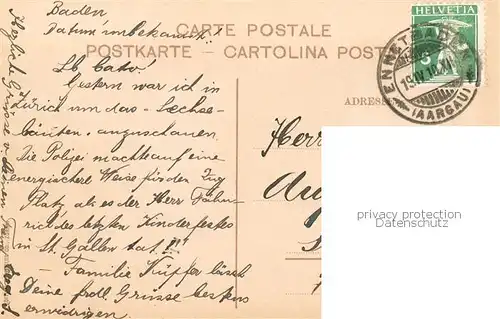 Baden
Datum unbekannt!
CARTE POSTALE
POSTKARTE - CARTOLINA POST
HELVETIA
5
ENNETBADEN
19.IV.10.XI
(AARGAU)
ADRESSE
Lb.
Gestern war ich in
Zürich um das Sechse-
läuten anzuschauen.
Die Polizei machte auf eine
energischere Weise für den Zug
Platz als es der Herr Fähn-
rich des letzten Kinderfestes
in St. Gallen tat!!!
- Familie Küpfer lässt
Deine frdl. Grüsse bestens
erwidrigen.
Herzliche Grüsse v. Deinem
Herr
privacy protection
Datenschutz